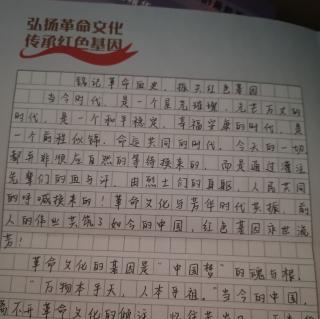 弘扬革命文化
传承红色基因
铭记革命历史，振兴红色基因
当今时代，是一个星光璀璨，光芒万丈的
时代，是一个和平稳定，幸福安康的时代，是
一个前程似锦，命运共同的时代。今天的一切
都并非顺应自然的等待换来的，而是通过
先辈们的血与汗，由烈士们的身躯，人民共同
的呼喊换来的！革命文化与芳华时代共振，前
人的伟业共筑了如今的中国，红色基因永世流
芳！
革命文化的基因是"中国梦"的魂与根，
"万物本乎天，人本乎祖。"当今的中国，
离不开革命文化的倾注